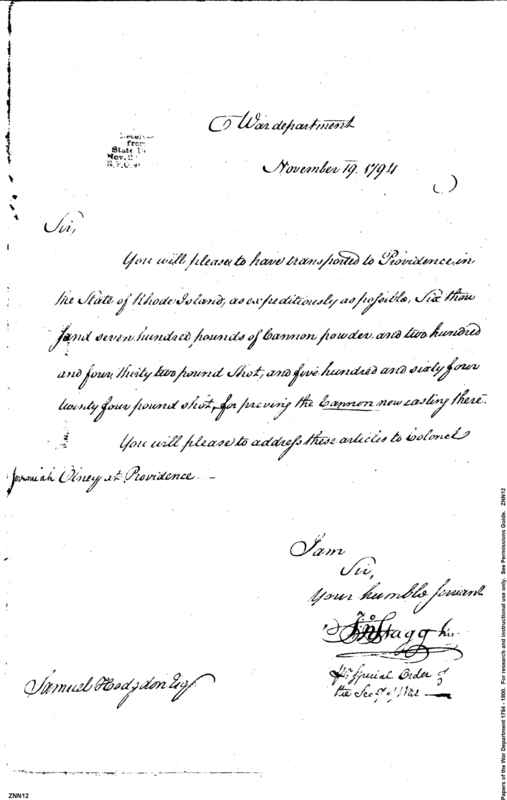 War department
November 19. 1794
from
State
Nov.
Sir,
You will please to have transported to Providence, in
the State of Rhode Island, as expeditiously as possible, Six thou
sand seven hundred pounds of Cannon powder, and two hundred
and four, thirty two pound shot, and five hundred and sixty four
twenty four pound shot, for proving the Cannon now casting there.
You will please to address these articles to Colonel
Jeremiah Olney at Providence —
I am
Sir,
Your humble servant
Jno Stagg
Pr Special Order of
the Secy of War —
Samuel Hodgdon Esqr
ZNN12
Papers of the War Department 1784 - 1800. For research and instructional use only. See Permissions Guide. ZNN12